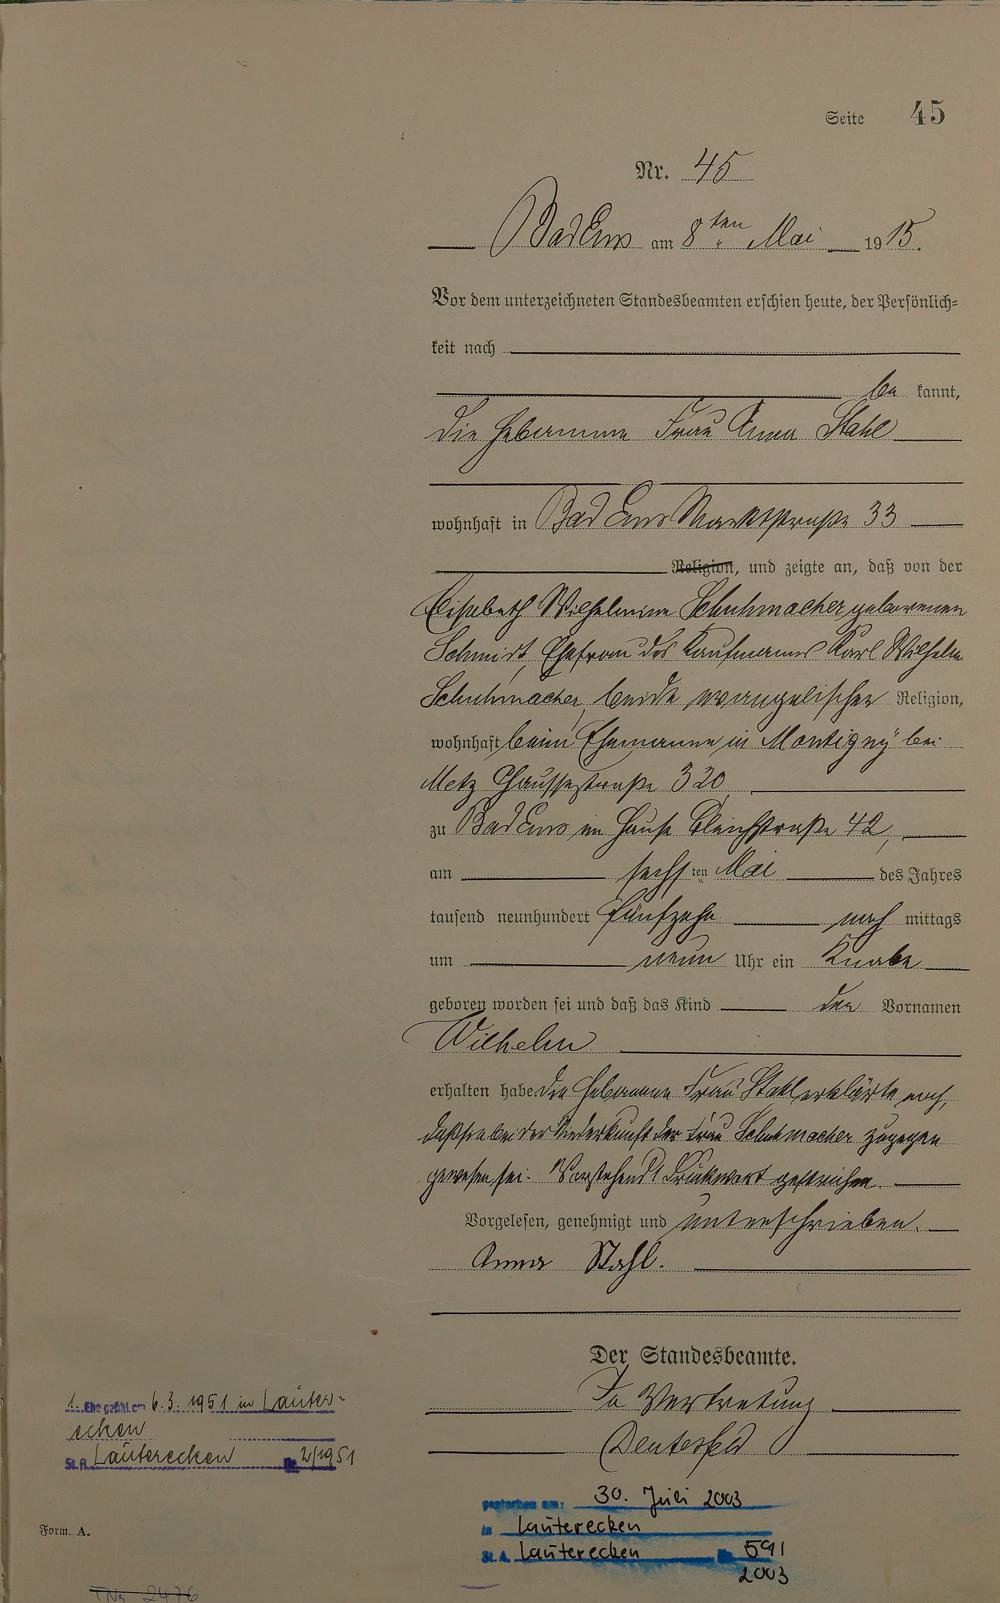 Seite 45
Nr. 45
Bad Ems am 8ten Mai 1915.
Vor dem unterzeichneten Standesbeamten erschien heute, der Persönlich-
keit nach
be kannt,
die Hebamme Frau Anna Stahl
wohnhaft in Bad Ems Marktstraße 33
Religion, und zeigte an, daß von der
Elisabeth Wilhelmine Schuhmacher geborenen
Schmidt, Ehefrau des Kaufmanns Karl Wilhelm
Schuhmacher, beide evangelischer Religion,
wohnhaft beim Ehemanne in Montigny bei
Metz Chaussestraße 320
zu Bad Ems im Hause Bleichstraße 42,
am sechsten Mai des Jahres
tausend neunhundert fünfzehn nach mittags
um neun Uhr ein Knabe
geboren worden sei und daß das Kind den Vornamen
Wilhelm
erhalten habe. Die Hebamme Frau Stahl erklärte noch,
daß sie bei der Niederkunft der Frau Schuhmacher zugegen
gewesen sei. Vorstehend 1 Druckwort gestrichen.
Vorgelesen, genehmigt und unterschrieben.
Anna Stahl.
Der Standesbeamte.
In Vertretung
1. Ehe geschl. am 6.3.1951 in Lauter-
ecken
St.A. Lauterecken Nr. 2/1951
gestorben am: 30. Juli 2003
in Lauterecken
St.A. Lauterecken Nr. 591
2003
Form. A.